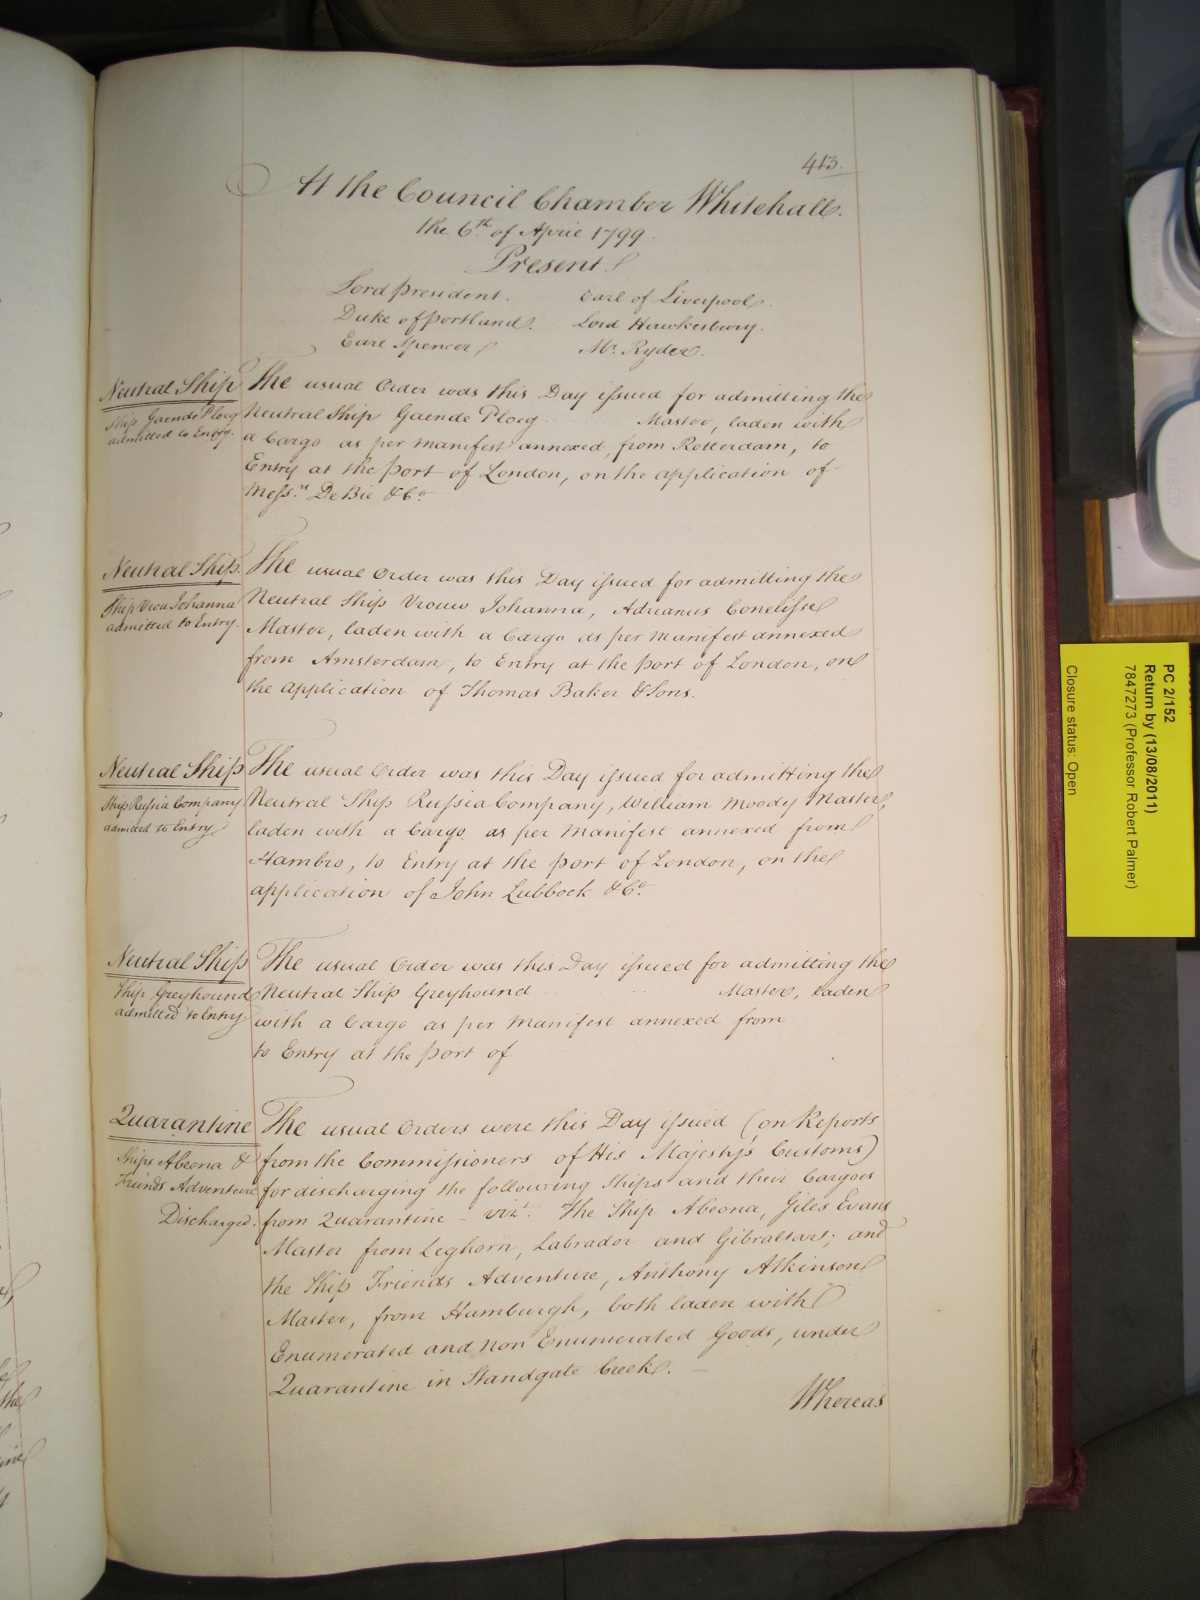 413.
At the Council Chamber Whitehall.
the 6th. of April 1799.
Present
Lord President. Earl of Liverpool.
Duke of Portland. Lord Hawkesbury.
Earl Spencer Mr. Ryder.
Neutral Ship
Ship Gaende Ploeg
admitted to Entry.
The usual Order was this Day issued for admitting the
Neutral Ship Gaende Ploeg Master, laden with
a Cargo as per Manifest annexed, from Rotterdam, to
Entry at the Port of London, on the application of
Messrs. De Bie & Co.
Neutral Ship.
Ship Vrou Johanna
admitted to Entry.
The usual Order was this Day issued for admitting the
Neutral Ship Vrouw Johanna, Adrianus Conelisse
Master, laden with a Cargo as per Manifest annexed
from Amsterdam, to Entry at the Port of London, on
the application of Thomas Baker & Sons.
Neutral Ship
Ship Russia Company
admitted to Entry.
The usual Order was this Day issued for admitting the
Neutral Ship Russia Company, William Moody Master,
laden with a Cargo as per Manifest annexed from
Hambro, to Entry at the Port of London, on the
application of John Lubbock & Co.
Neutral Ship
Ship Greyhound
admitted to Entry
The usual Order was this Day issued for admitting the
Neutral Ship Greyhound Master, laden
with a Cargo as per Manifest annexed from
to Entry at the Port of
Quarantine
Ships Abeona &
Friends Adventure
Discharged.
The usual Orders were this Day issued (on Reports
from the Commissioners of His Majesty's Customs)
for discharging the following Ships and their Cargoes
from Quarantine - vizt. The Ship Abeona, Giles Evans
Master from Leghorn, Labrador and Gibraltar; and
the Ship Friends Adventure, Anthony Atkinson
Master, from Hamburgh, both laden with
Enumerated and non Enumerated Goods, under
Quarantine in Standgate Creek. -
Whereas
PC 2/152
Return by (13/08/2011)
7847273 (Professor Robert Palmer)
Closure status: Open